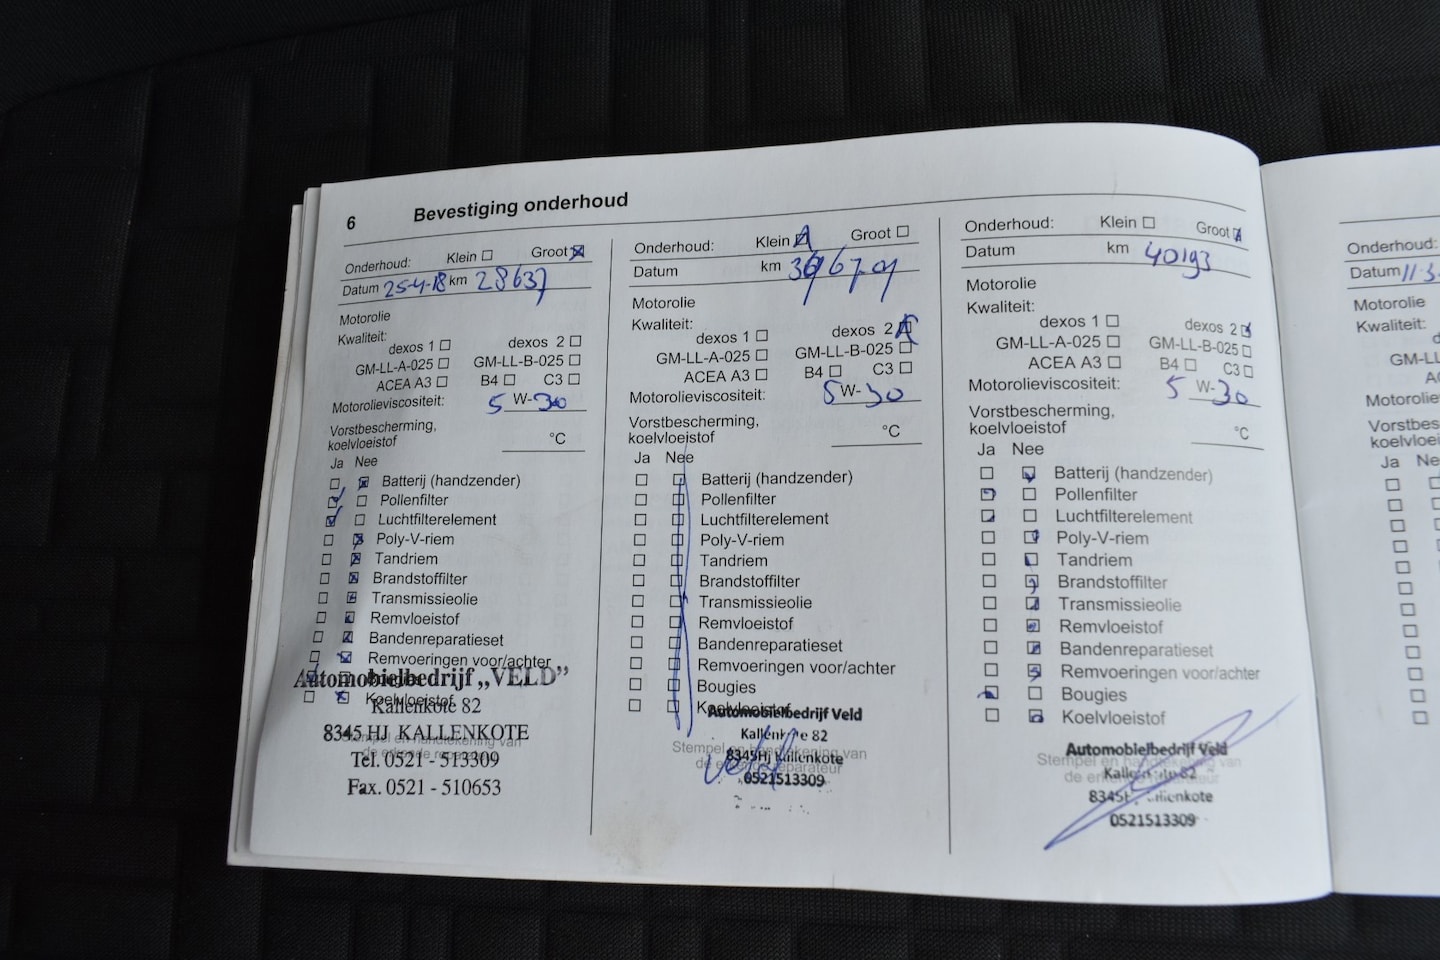 6 Bevestiging onderhoud
Onderhoud: Klein Groot
Datum 25-4-18 km 28637
Motorolie
Kwaliteit:
dexos 1 dexos 2
GM-LL-A-025 GM-LL-B-025
ACEA A3 B4 C3
Motorolieviscositeit: 5 W-30
Vorstbescherming,
koelvloeistof °C
Ja Nee
Batterij (handzender)
Pollenfilter
Luchtfilterelement
Poly-V-riem
Tandriem
Brandstoffilter
Transmissieolie
Remvloeistof
Bandenreparatieset
Remvoeringen voor/achter
Bougies
Koelvloeistof
Automobielbedrijf „VELD”
Kallenkote 82
8345 HJ KALLENKOTE
Stempel en handtekening van
de erkende reparateur
Tel. 0521 - 513309
Fax. 0521 - 510653
Onderhoud: Klein Groot
Datum km
Motorolie
Kwaliteit:
dexos 1 dexos 2
GM-LL-A-025 GM-LL-B-025
ACEA A3 B4 C3
Motorolieviscositeit: 5 W-30
Vorstbescherming,
koelvloeistof °C
Ja Nee
Batterij (handzender)
Pollenfilter
Luchtfilterelement
Poly-V-riem
Tandriem
Brandstoffilter
Transmissieolie
Remvloeistof
Bandenreparatieset
Remvoeringen voor/achter
Bougies
Koelvloeistof
Automobielbedrijf Veld
Kallenkote 82
Stempel en handtekening van
8345Hj Kallenkote
de erkende reparateur
0521513309
Onderhoud: Klein Groot
Datum km 40193
Motorolie
Kwaliteit:
dexos 1 dexos 2
GM-LL-A-025 GM-LL-B-025
ACEA A3 B4 C3
Motorolieviscositeit: 5 W-30
Vorstbescherming,
koelvloeistof °C
Ja Nee
Batterij (handzender)
Pollenfilter
Luchtfilterelement
Poly-V-riem
Tandriem
Brandstoffilter
Transmissieolie
Remvloeistof
Bandenreparatieset
Remvoeringen voor/achter
Bougies
Koelvloeistof
Automobielbedrijf Veld
Stempel en handtekening van
Kallenkote 82
de erkende reparateur
0521513309
Onderhoud:
Datum
Motorolie
Kwaliteit:
GM-LL
Motorolie
Vorstbes
koelvloei
Ja Ne